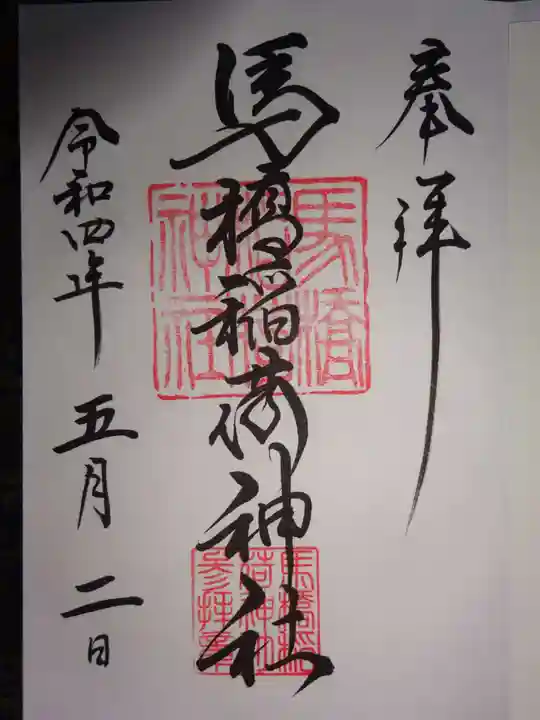 奉拝
馬橋稲荷神社
令和四年 五月 二日
馬橋
稲荷
神社
馬橋稲
荷神社
参拝章